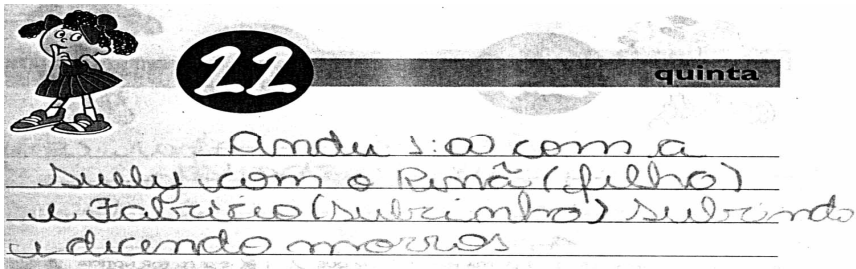 22
quinta
Andei 1:00 com a
Suely com o Renã (filho)
e Fabricio (subrinho) subrindo
e dicendo morros